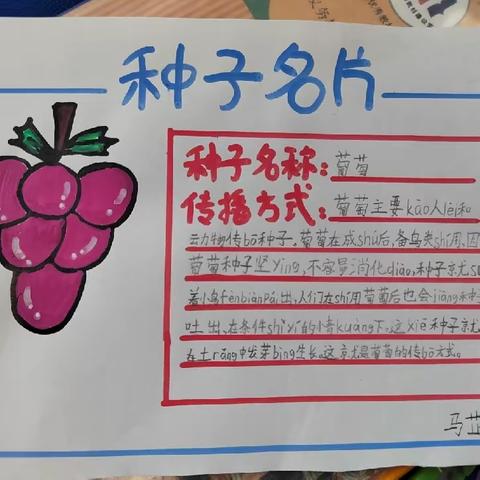 种子名片
种子名称：葡萄
传播方式：葡萄主要kào人lèi和
动物传bō种子。葡萄在成shú后，备鸟类shí用，因
葡萄种子坚yìng，不容易消化diào，种子就
着小鸟fènbiànpái出，人们在shí用葡萄后也会jiāng种
吐出，在条件shì yí的小青kuàng下，这xiē种子就
在土rǎng中发芽bìng生长。这就是葡萄的传bō方式。
马